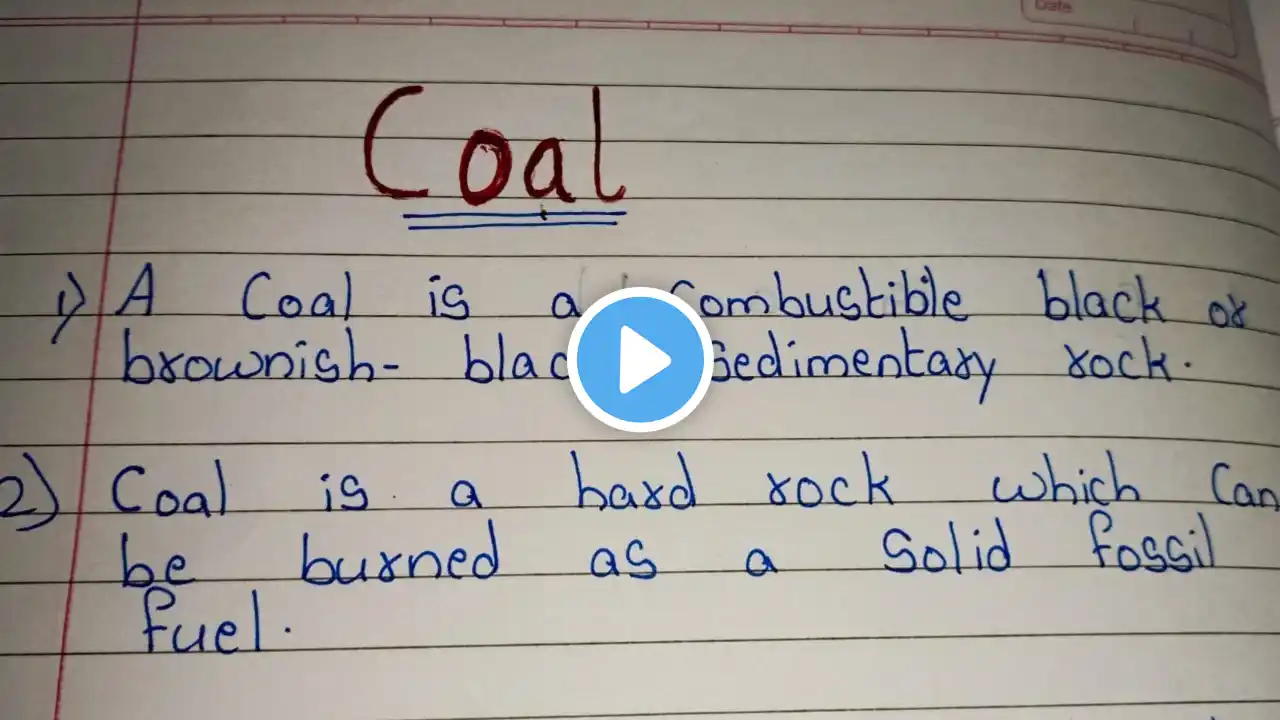 Date
Coal
1) A Coal is a Combustible black or
brownish- Sedimentary rock.
2) Coal is a hard rock which Can
be burned as a Solid fossil
fuel.